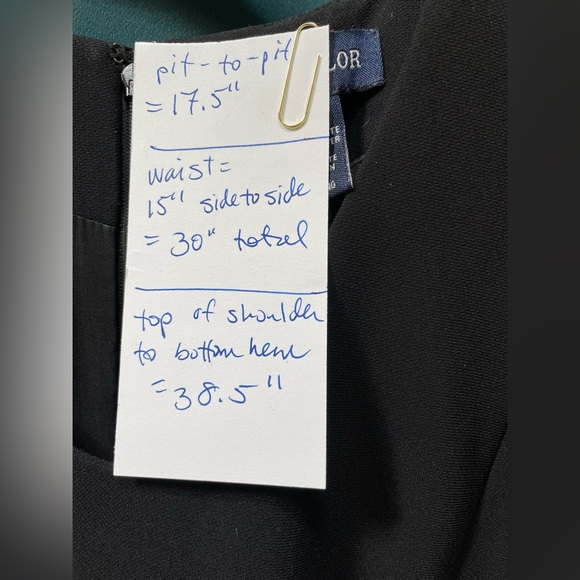 pit-to-pit
= 17.5"
LOR
waist =
15" side to side
= 30" total
top of shoulder
to bottom hem
= 38.5"